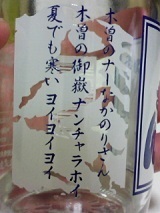 木曽のナーなかのりさん
木曽の御嶽ナンチャラホイ
夏でも寒いヨイヨイヨイ